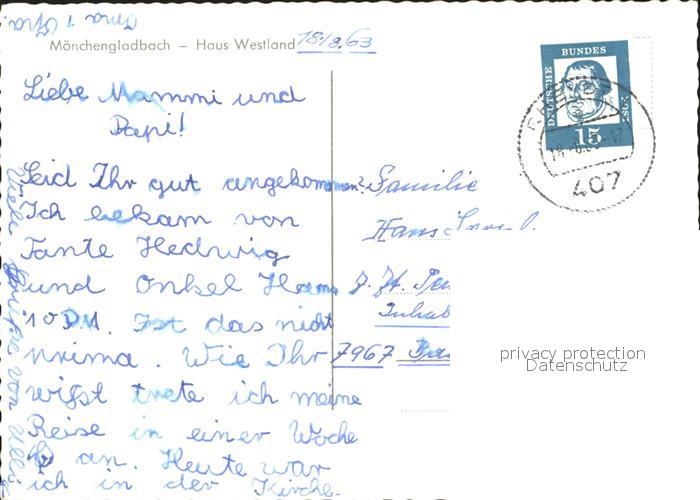 Mönchengladbach – Haus Westland
18.8.63
Liebe Mammi und
Papi!
Seid Ihr gut angekommen?
Ich bekam von
Tante Hedwig
und Onkel Hans
10 DM. Ist das nicht
prima. Wie Ihr
wißt trete ich meine
Reise in einer Woche
an. Heute war
ich in der Kirche.
Viele Grüße von Ulli
Oma + Opa
Familie
Hans
z. Zt.
7967
DEUTSCHE
BUNDES
POST
15
407
privacy protection
Datenschutz